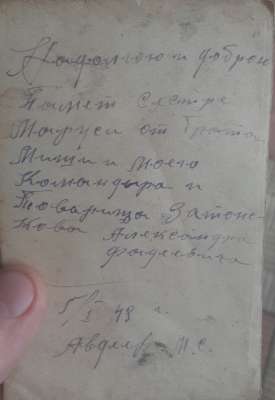 На долгою и доброю
Памет Сестре
Маруси от Брата
Миши и моего
Командира и
Товарища Затонс-
кова Александра
Фадеевича
5/I 49 г.
Авдеев М.С.